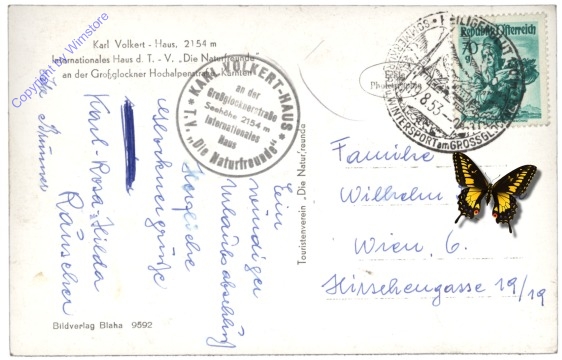 Karl Volkert - Haus, 2154 m
Internationales Haus d. T. - V. „Die Naturfreunde"
an der Großglockner Hochalpenstraße, Kärnten
KARL VOLKERT-HAUS
an der
Großglocknerstraße
Seehöhe 2154 m
Internationales
Haus
* T.V. „Die Naturfreunde" *
Republik Österreich
70
HEILIGENBLUT
WINTERSPORT am GROSSGLOCKNER
8.53
Echte
Photographie
Familie
Wilhelm
Wien, 6.
Hirschengasse 19/19
Touristenverein „Naturfreunde
Ein
windiger
Urlaubsabschluß
Herzliche
Glocknergrüße
Karl-Rosa-Hilda
Rauscher
Bildverlag Blaha 9592
Copyright by Wimstore